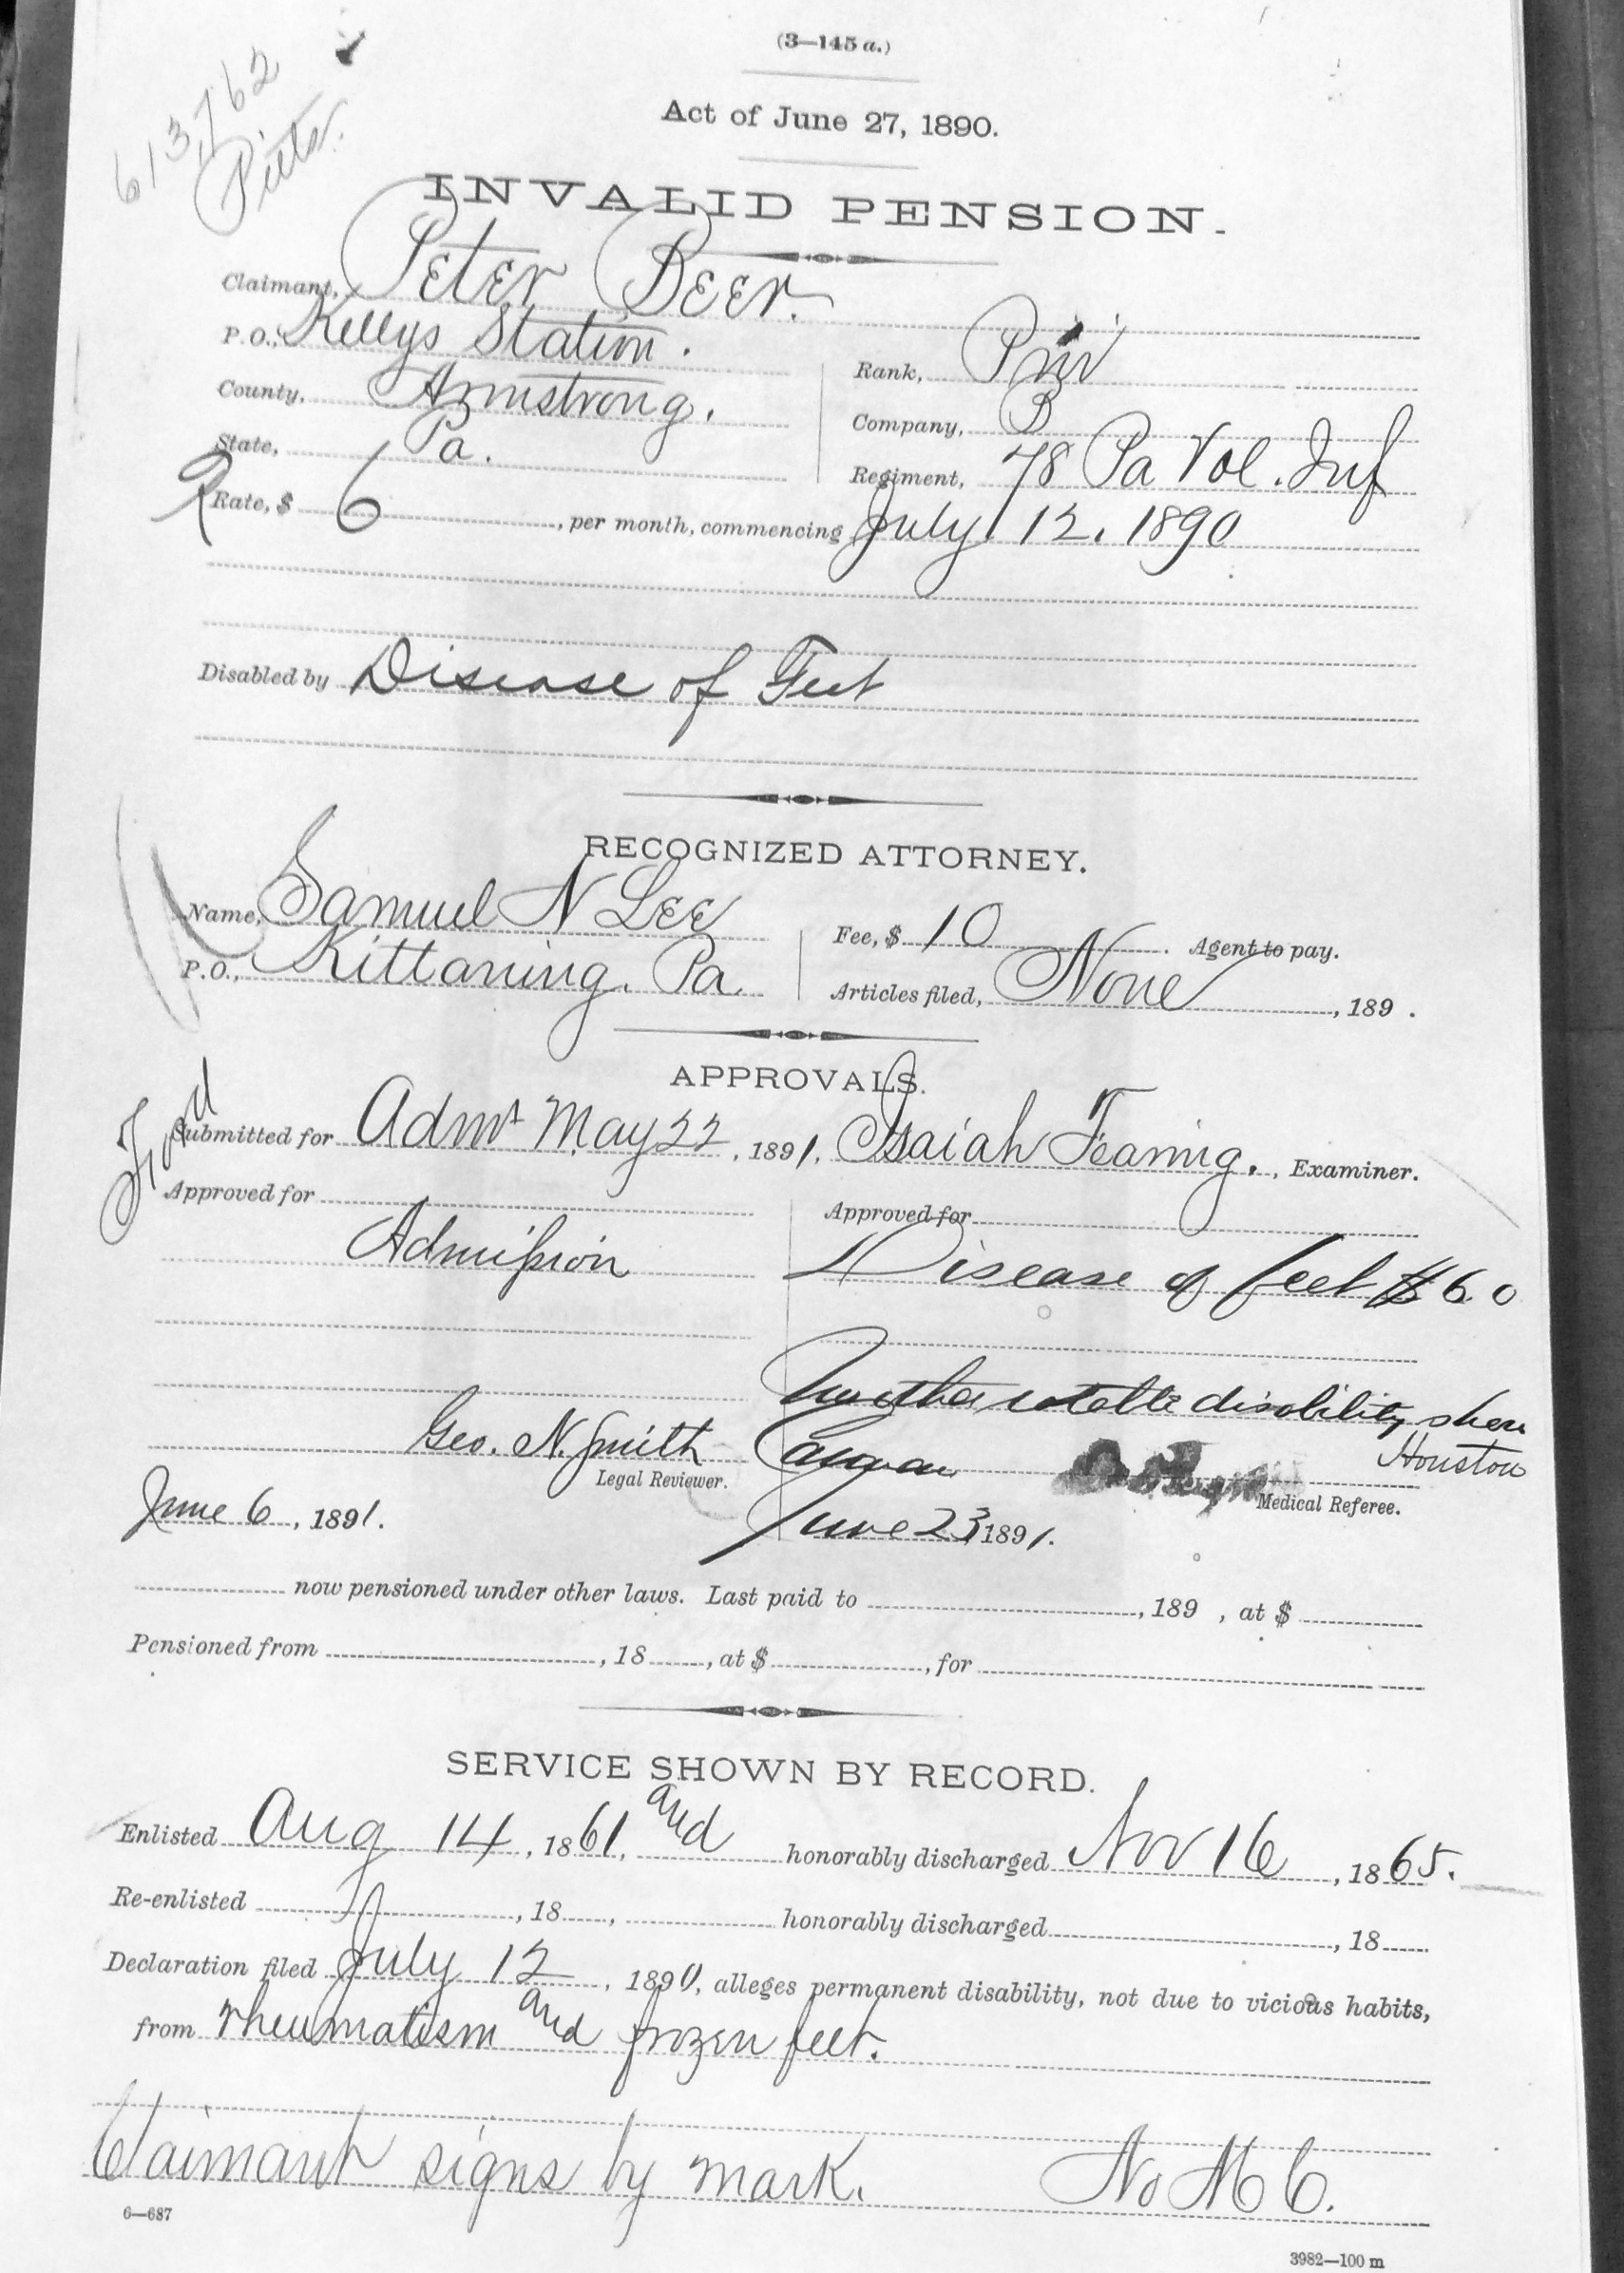 (3—145 a.)
613,762
Pitts.
Act of June 27, 1890.
INVALID PENSION.
Claimant, Peter Beer.
P. O., Kellys Station.
Rank, Priv
County, Armstrong.
Company, B
State, Pa.
Regiment, 78 Pa Vol. Inf
Rate, $ 6, per month, commencing July 12, 1890
Disabled by Disease of Feet
RECOGNIZED ATTORNEY.
Name, Samuel N Lee
Fee, $ 10 Agent to pay.
P. O., Kittaning, Pa.
Articles filed, None, 189 .
APPROVALS.
Submitted for Admn May 22, 1891, Isaiah Fearing, Examiner.
Approved for
Approved for
Admission
Disease of feet $6.0
disability shown
Geo. N. Smith
Houston
Legal Reviewer.
Medical Referee.
June 6, 1891.
June 23, 1891.
now pensioned under other laws. Last paid to , 189 , at $
Pensioned from , 18 , at $ , for
SERVICE SHOWN BY RECORD.
Enlisted Aug 14, 1861, and honorably discharged Nov 16, 1865.
Re-enlisted , 18 , honorably discharged , 18
Declaration filed July 12, 1890, alleges permanent disability, not due to vicious habits,
from rheumatism and frozen feet.
Claimant signs by mark. No M C.
6—687
3982—100 m